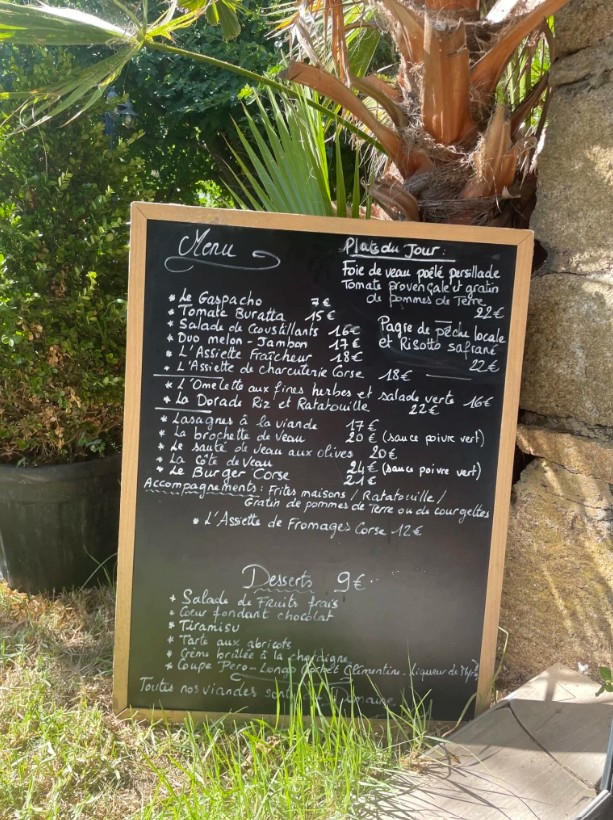 Menu
Plats du Jour :
Foie de veau poêlé persillade
Tomate provençale et gratin
de pommes de Terre
22€
Pagre de pêche locale
et Risotto safrané
22€
* Le Gaspacho 7€
* Tomate Buratta 15€
* Salade de Croustillants 16€
* Duo melon - Jambon 17€
* L'Assiette Fraîcheur 18€
* L'Assiette de charcuterie Corse 18€
* L'Omelette aux fines herbes et salade verte 16€
* La Dorade Riz et Ratatouille 22€
* Lasagnes à la viande 17€
* La brochette de Veau 20€ (sauce poivre vert)
* Le sauté de Veau aux olives 20€
* La Côte de Veau 24€ (sauce poivre vert)
* Le Burger Corse 21€
Accompagnements : Frites maisons / Ratatouille /
Gratin de pommes de Terre ou de courgettes
* L'Assiette de Fromages Corse 12€
Desserts 9€
* Salade de Fruits frais
* Coeur fondant chocolat
* Tiramisu
* Tarte aux abricots
* Crème brûlée à la chataigne
* Coupe Pero-Longo Clémentine. Liqueur de
Toutes nos viandes sont Domaine.